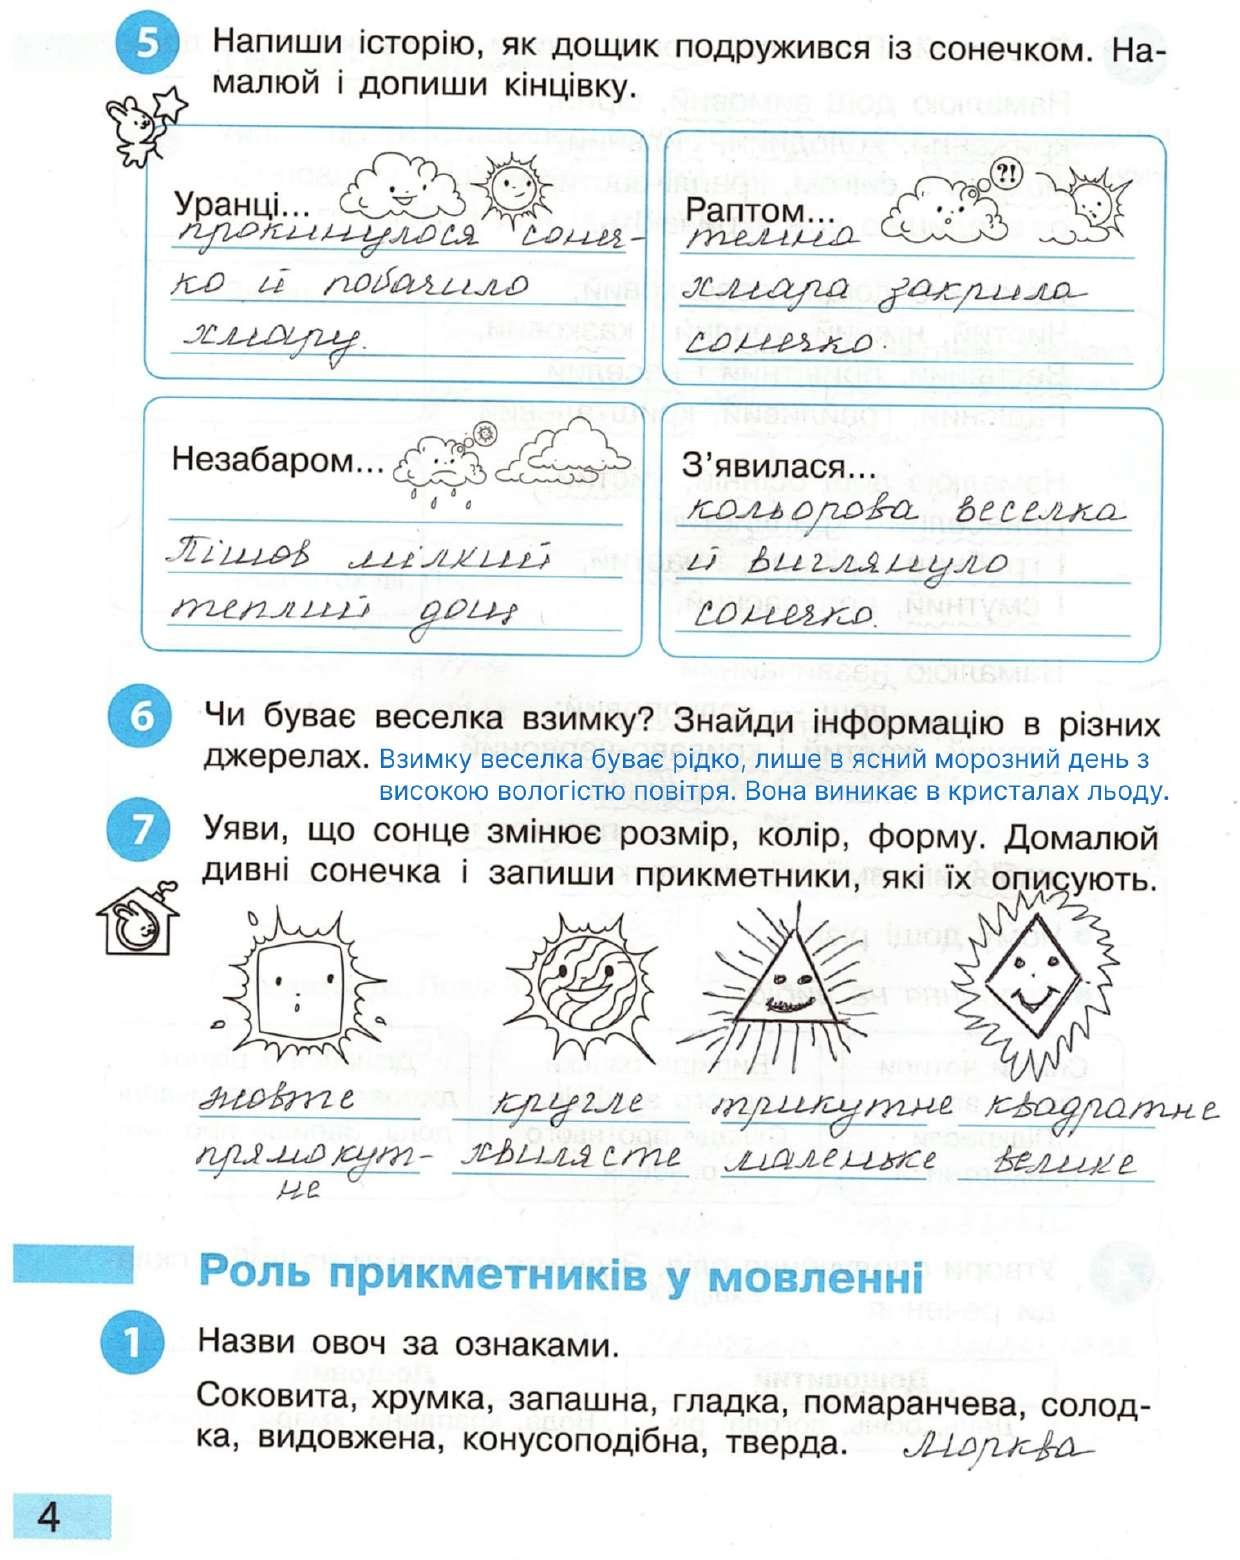 5 Напиши історію, як дощик подружився із сонечком. На-
малюй і допиши кінцівку.
Уранці...
прокинулося сонеч-
ко й побачило
хмару.
Раптом... ?!
темна
хмара закрила
сонечко.
Незабаром...
Пішов мілкий
теплий дощ
З'явилася...
кольорова веселка
й виглянуло
сонечко.
6 Чи буває веселка взимку? Знайди інформацію в різних
джерелах. Взимку веселка буває рідко, лише в ясний морозний день з
високою вологістю повітря. Вона виникає в кристалах льоду.
7 Уяви, що сонце змінює розмір, колір, форму. Домалюй
дивні сонечка і запиши прикметники, які їх описують.
жовте кругле трикутне квадратне
прямокут- хвилясте маленьке велике
не
Роль прикметників у мовленні
1 Назви овоч за ознаками.
Соковита, хрумка, запашна, гладка, помаранчева, солод-
ка, видовжена, конусоподібна, тверда. морква
4